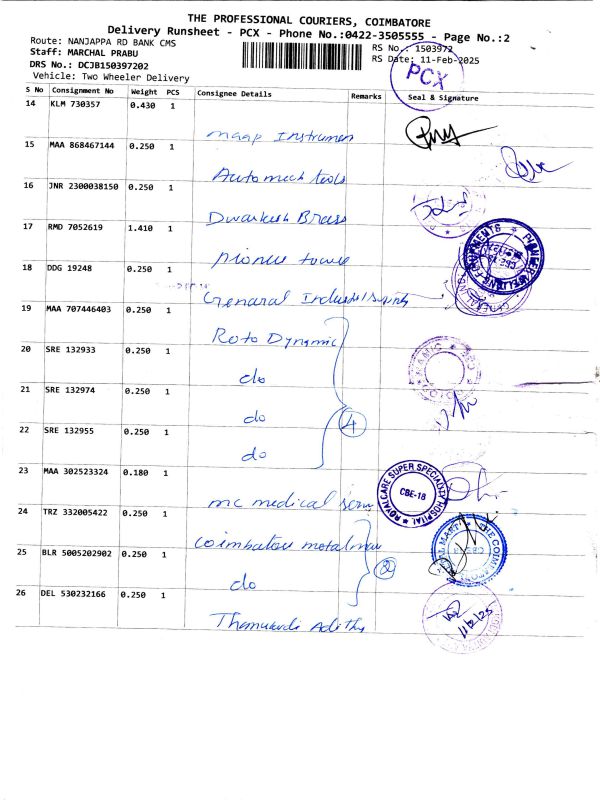 THE PROFESSIONAL COURIERS, COIMBATORE
Delivery Runsheet - PCX - Phone No.:0422-3505555 - Page No.:2
Route: NANJAPPA RD BANK CMS
Staff: MARCHAL PRABU
DRS No.: DCJB150397202
Vehicle: Two Wheeler Delivery
RS No.: 1503972
RS Date: 11-Feb-2025
PCX
S No Consignment No Weight PCS Consignee Details Remarks Seal & Signature
14 KLM 730357 0.430 1
maap Instrumen
15 MAA 868467144 0.250 1
Automech tools
16 JNR 2300038150 0.250 1
Dwarkesh Brass
17 RMD 7052619 1.410 1
18 DDG 19248 0.250 1
Genaral Industrial
19 MAA 707446403 0.250 1
Roto Dynamic
20 SRE 132933 0.250 1
do
21 SRE 132974 0.250 1
do
22 SRE 132955 0.250 1
do
4
23 MAA 302523324 0.180 1
mc medical serv
ROYALCARE SUPER SPECIALITY HOSPITAL
CBE-18
24 TRZ 332005422 0.250 1
Coimbatore
25 BLR 5005202902 0.250 1
do
2
26 DEL 530232166 0.250 1
11/2/25